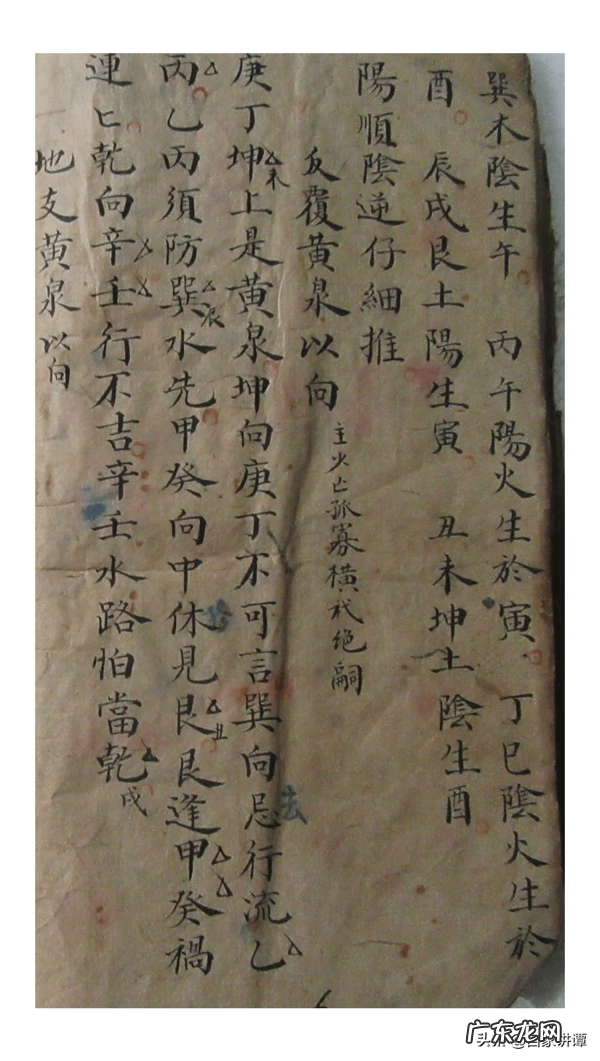 巽木陰生午　丙午陽火生於寅　丁巳陰火生於
酉　辰戌艮土陽生寅　丑未坤土陰生酉
陽順陰逆仔細推
反覆黃泉以向
主火亡孤寡橫代絕嗣
庚丁坤未上是黃泉坤向庚丁不可言巽向忌行流乙
丙乙丙須防巽辰水先甲癸向中休見艮丑艮逢甲癸禍
連匕乾向辛壬行不吉辛壬水路怕當乾戌
地支黃泉以向
法
广东龙网
头条 @百家讲谭